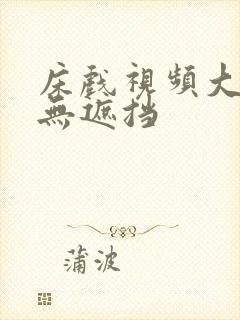 床戲視頻大
無遮挡
蒲波